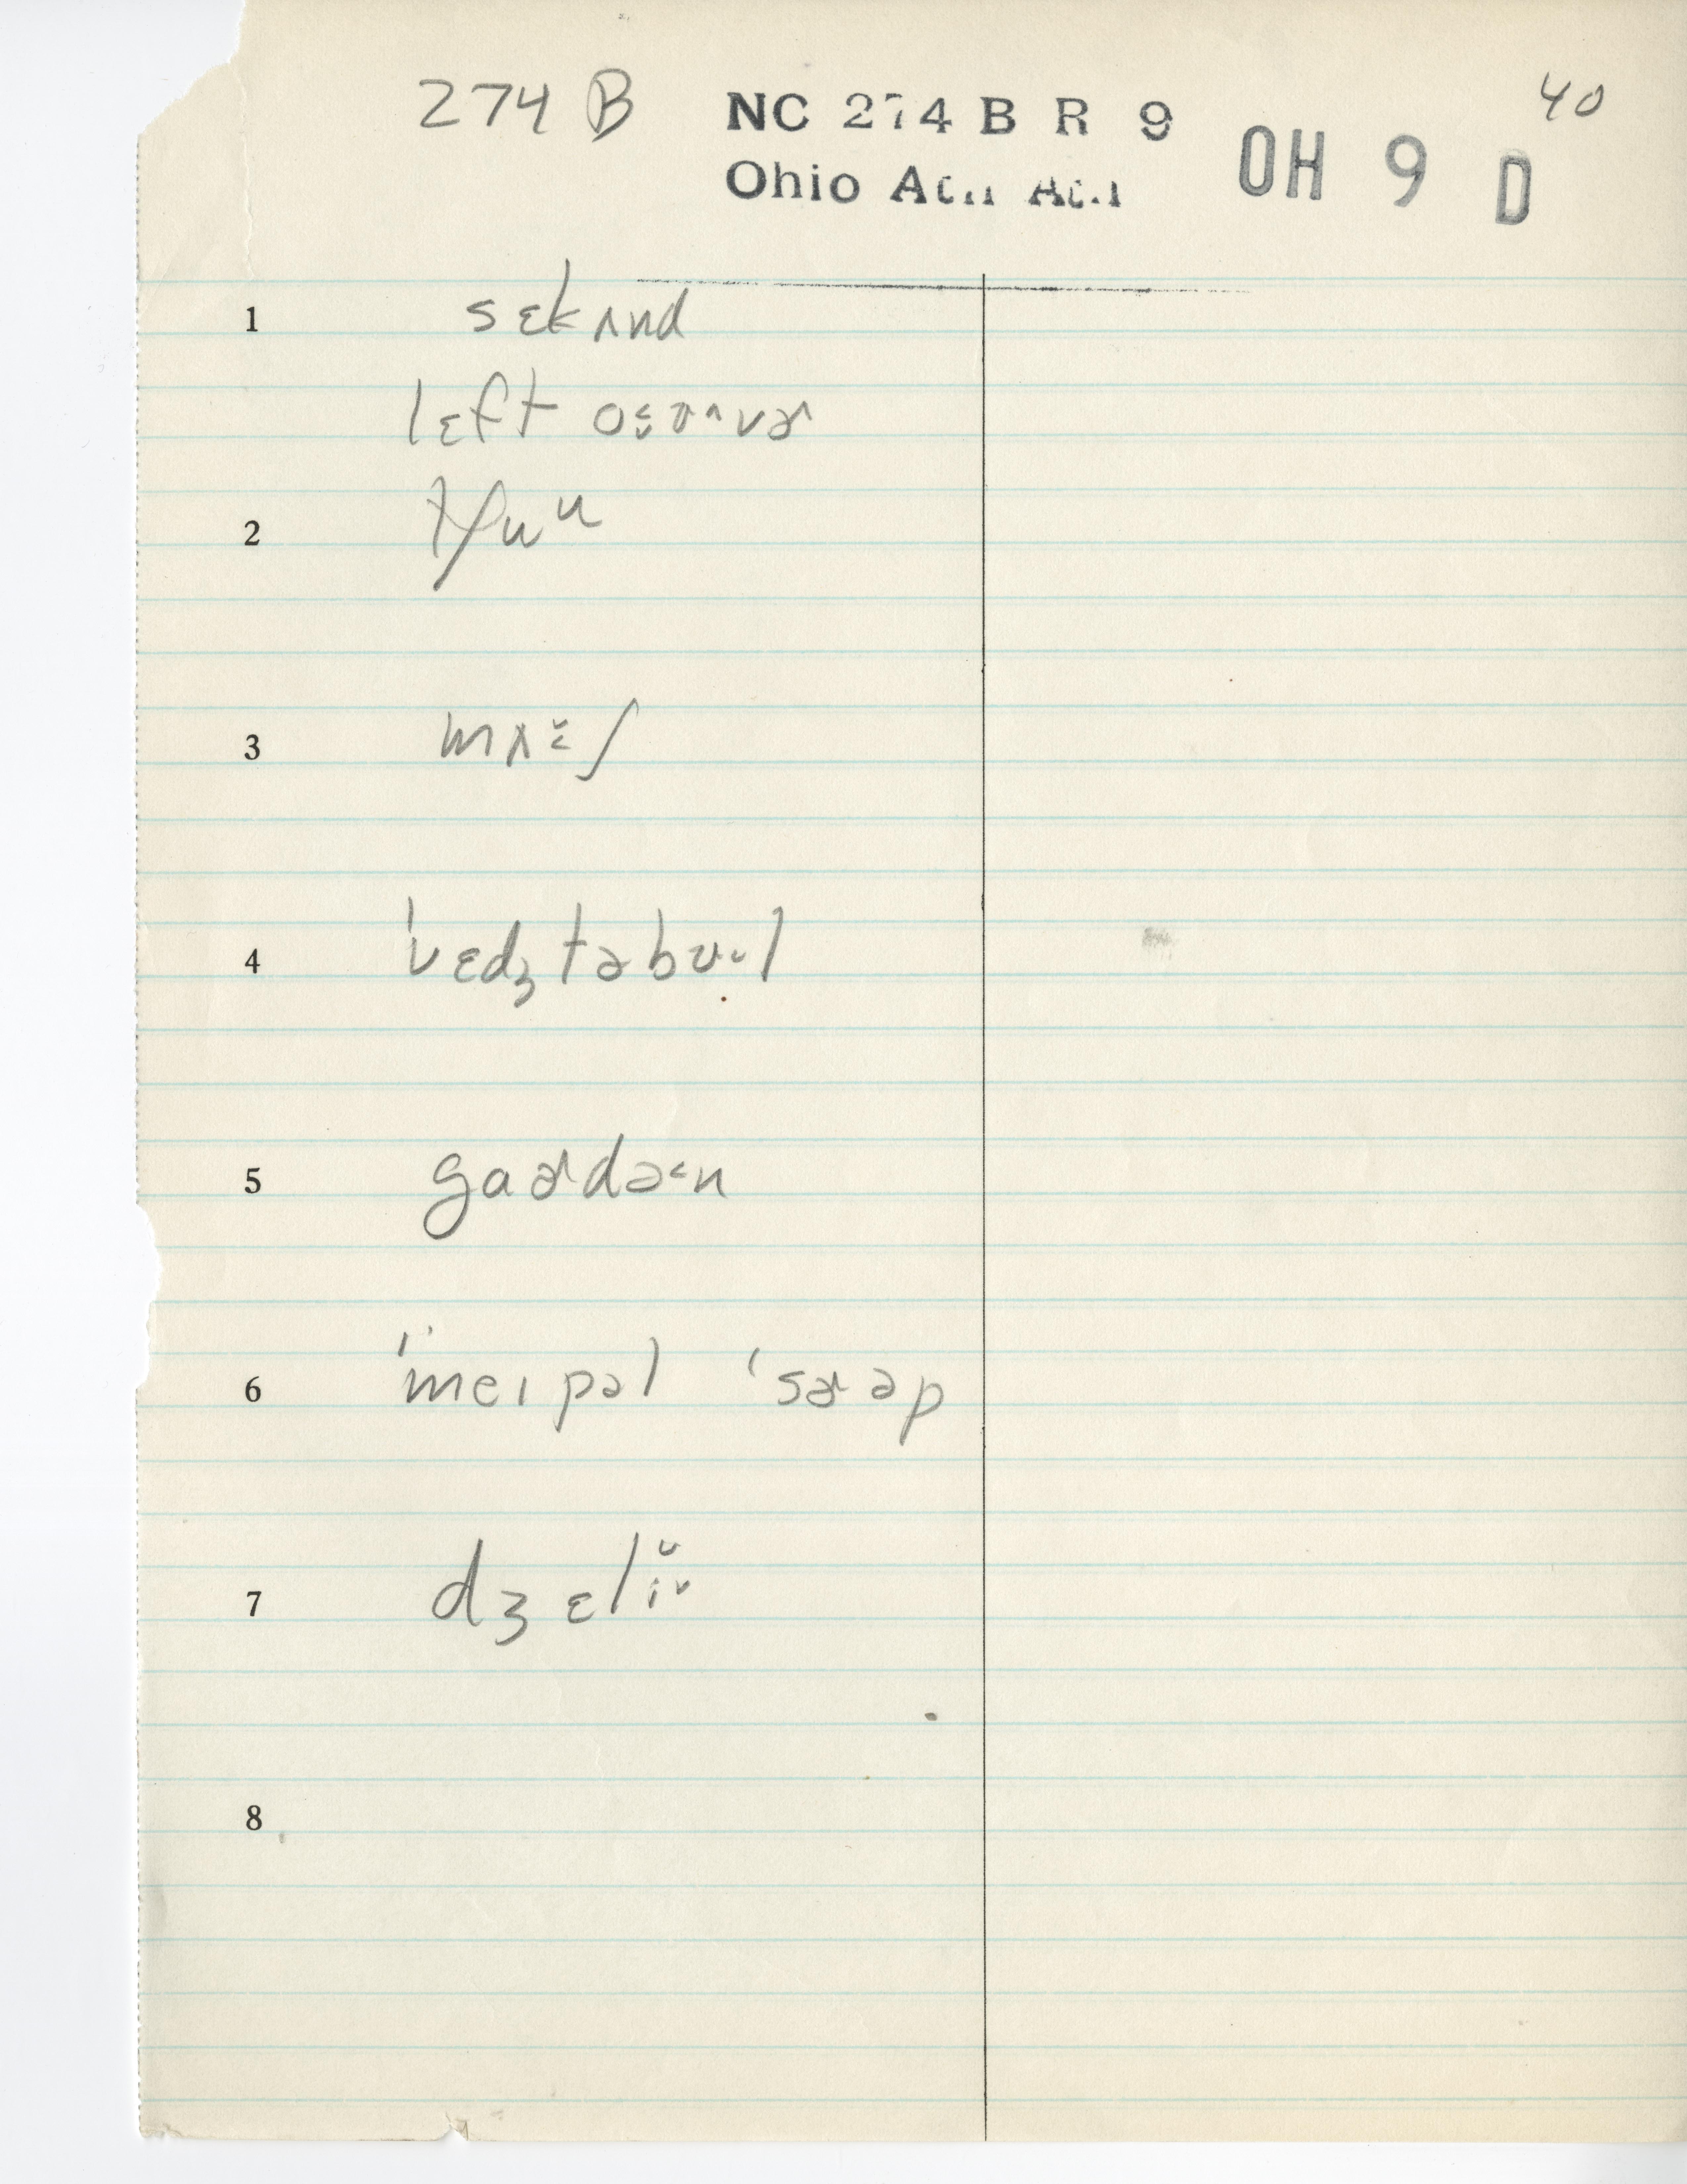 274 B NC 274 B R 9 40
Ohio OH 9 D
1 sɛkʌnd
lɛft
2 tʃuᵘ
3
4 ˈvɛdʒtəbʊ˞l
5 gaɚdə˂n
6 ˈmeɪpəl ˈsɚəp
7 dʒɛlĭᵛ
8